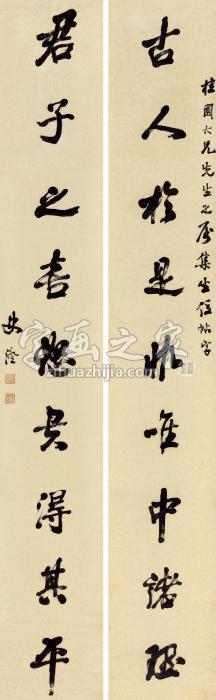 古人於是非唯中諸理
大兄先生之屬集坐位帖字
君子之喜怒貴得其平
史澄
字画之家
zihuazhijia.com